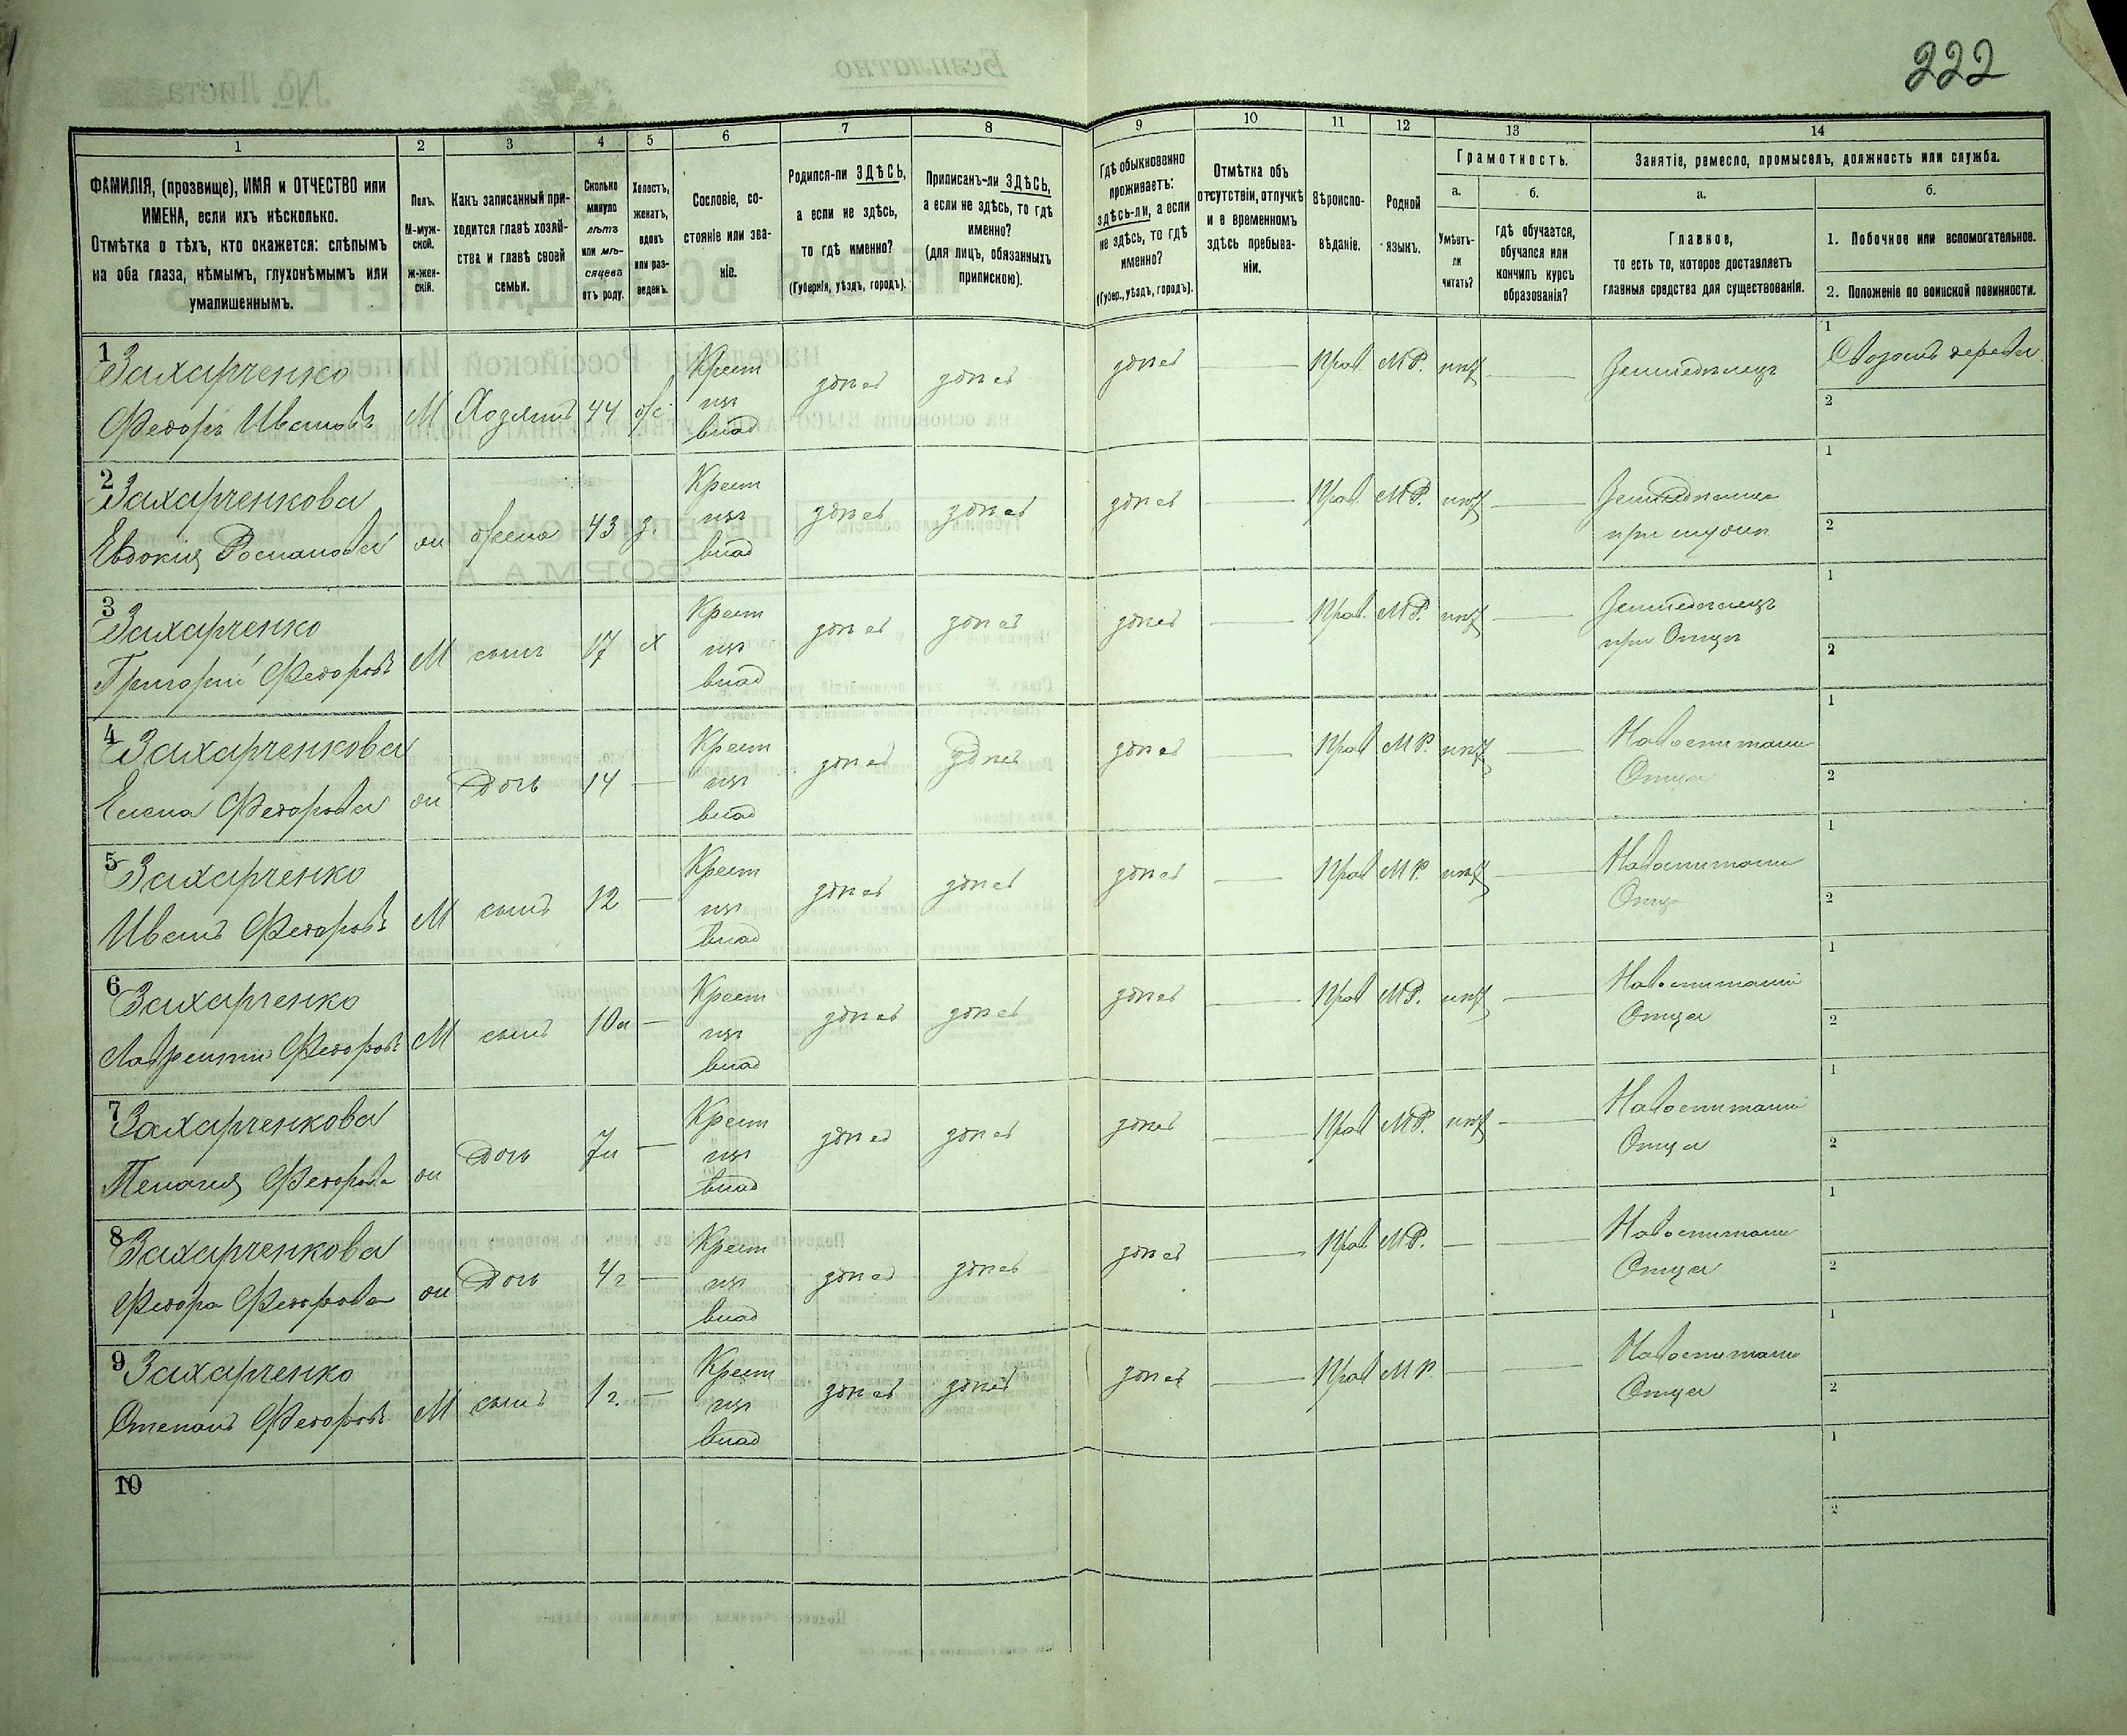 222
1
2
3
4
5
6
7
8
9
10
11
12
13
14
ФАМИЛІЯ, (прозвище), ИМЯ и ОТЧЕСТВО или
ИМЕНА, если ихъ нѣсколько.
Отмѣтка о тѣхъ, кто окажется: слѣпымъ
на оба глаза, нѣмымъ, глухонѣмымъ или
умалишеннымъ.
Полъ.
М-муж-
ской.
Ж-жен-
скій.
Какъ записанный при-
ходится главѣ хозяй-
ства и главѣ своей
семьи.
Сколько
минуло
лѣтъ
или мѣ-
сяцевъ
отъ роду.
Холостъ,
женатъ,
вдовъ
или раз-
веденъ.
Сословіе, со-
стояніе или зва-
ніе.
Родился-ли ЗДѢСЬ,
а если не здѣсь,
то гдѣ именно?
(Губернія, уѣздъ, городъ).
Приписанъ-ли ЗДѢСЬ,
а если не здѣсь, то гдѣ
именно?
(для лицъ, обязанныхъ
припискою).
Гдѣ обыкновенно
проживаетъ:
здѣсь-ли, а если
не здѣсь, то гдѣ
именно?
(Губер., уѣздъ, городъ).
Отмѣтка объ
отсутствіи, отлучкѣ
и о временномъ
здѣсь пребыва-
ніи.
Вѣроиспо-
вѣданіе.
Родной
языкъ.
Грамотность.
а.
б.
Умѣетъ-
ли
читать?
гдѣ обучается,
обучался или
кончилъ курсъ
образованія?
Занятіе, ремесло, промыселъ, должность или служба.
а.
б.
Главное,
то есть то, которое доставляетъ
главныя средства для существованія.
1. Побочное или вспомогательное.
2. Положеніе по воинской повинности.
1 Захарченко
Федоръ Ивановъ М Хозяинъ 44 ж. Крест
изъ
влад
здѣсь здѣсь здѣсь Прав. М.Р. нѣт Земледѣлецъ
1
2
2 Захарченкова
Евдокия Романова ж жена 43 з. Крест
изъ
влад
здѣсь здѣсь здѣсь Прав. М.Р. нѣт
при мужѣ
1
2
3 Захарченко
Григорий Федоровъ М сынъ 17 х Крест
изъ
влад
здѣсь здѣсь здѣсь Прав. М.Р. нѣт Земледѣлецъ
при Отцѣ
1
2
4 Захарченкова
Елена Федорова ж Дочь 14 Крест
изъ
влад
здѣсь здѣсь здѣсь Прав М.Р. нѣт
Отца
1
2
5 Захарченко
Иванъ Федоровъ М сынъ 12 Крест
изъ
влад
здѣсь здѣсь здѣсь Прав М.Р. нѣт
1
2
6 Захарченко
Лаврентий Федоровъ М сынъ 10л Крест
изъ
влад
здѣсь здѣсь здѣсь Прав М.Р. нѣт
Отца
1
2
7 Захарченкова
Пелагия Федорова ж Дочь 7л Крест
изъ
влад
здѣсь здѣсь здѣсь Прав М.Р. нѣт
Отца
1
2
8 Захарченкова
Федора Федорова ж Дочь 4г Крест
изъ
влад
здѣсь здѣсь здѣсь Прав М.Р.
Отца
1
2
9 Захарченко
Степанъ Федоровъ М сынъ 1г. Крест
изъ
влад
здѣсь здѣсь здѣсь Прав М.Р.
Отца
1
2
10
1
2